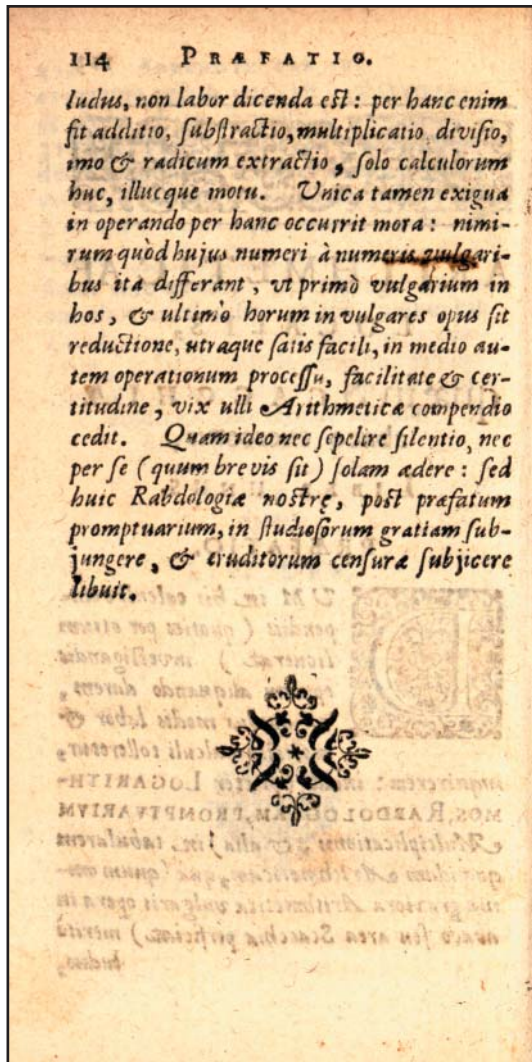 114 PRÆFATIO.
ludus, non labor dicenda est: per hanc enim
fit additio, substractio, multiplicatio divisio,
imo & radicum extractio, solo calculorum
huc, illucque motu. Unica tamen exigua
in operando per hanc occurrit mora: nimi-
rum quòd hujus numeri à numeris vulgari-
bus ita differant, vt primò vulgarium in
hos, & ultimò horum in vulgares opus sit
reductione, utraque satis facili, in medio au-
tem operationum processu, facilitate & cer-
titudine, vix ulli Arithmeticæ compendio
cedit. Quam ideo nec sepelire silentio, nec
per se (quum brevis sit) solam ædere: sed
huic Rabdologiæ nostrę, post præfatum
promptuarium, in studiosorum gratiam sub-
jungere, & eruditorum censuræ subjicere
libuit.